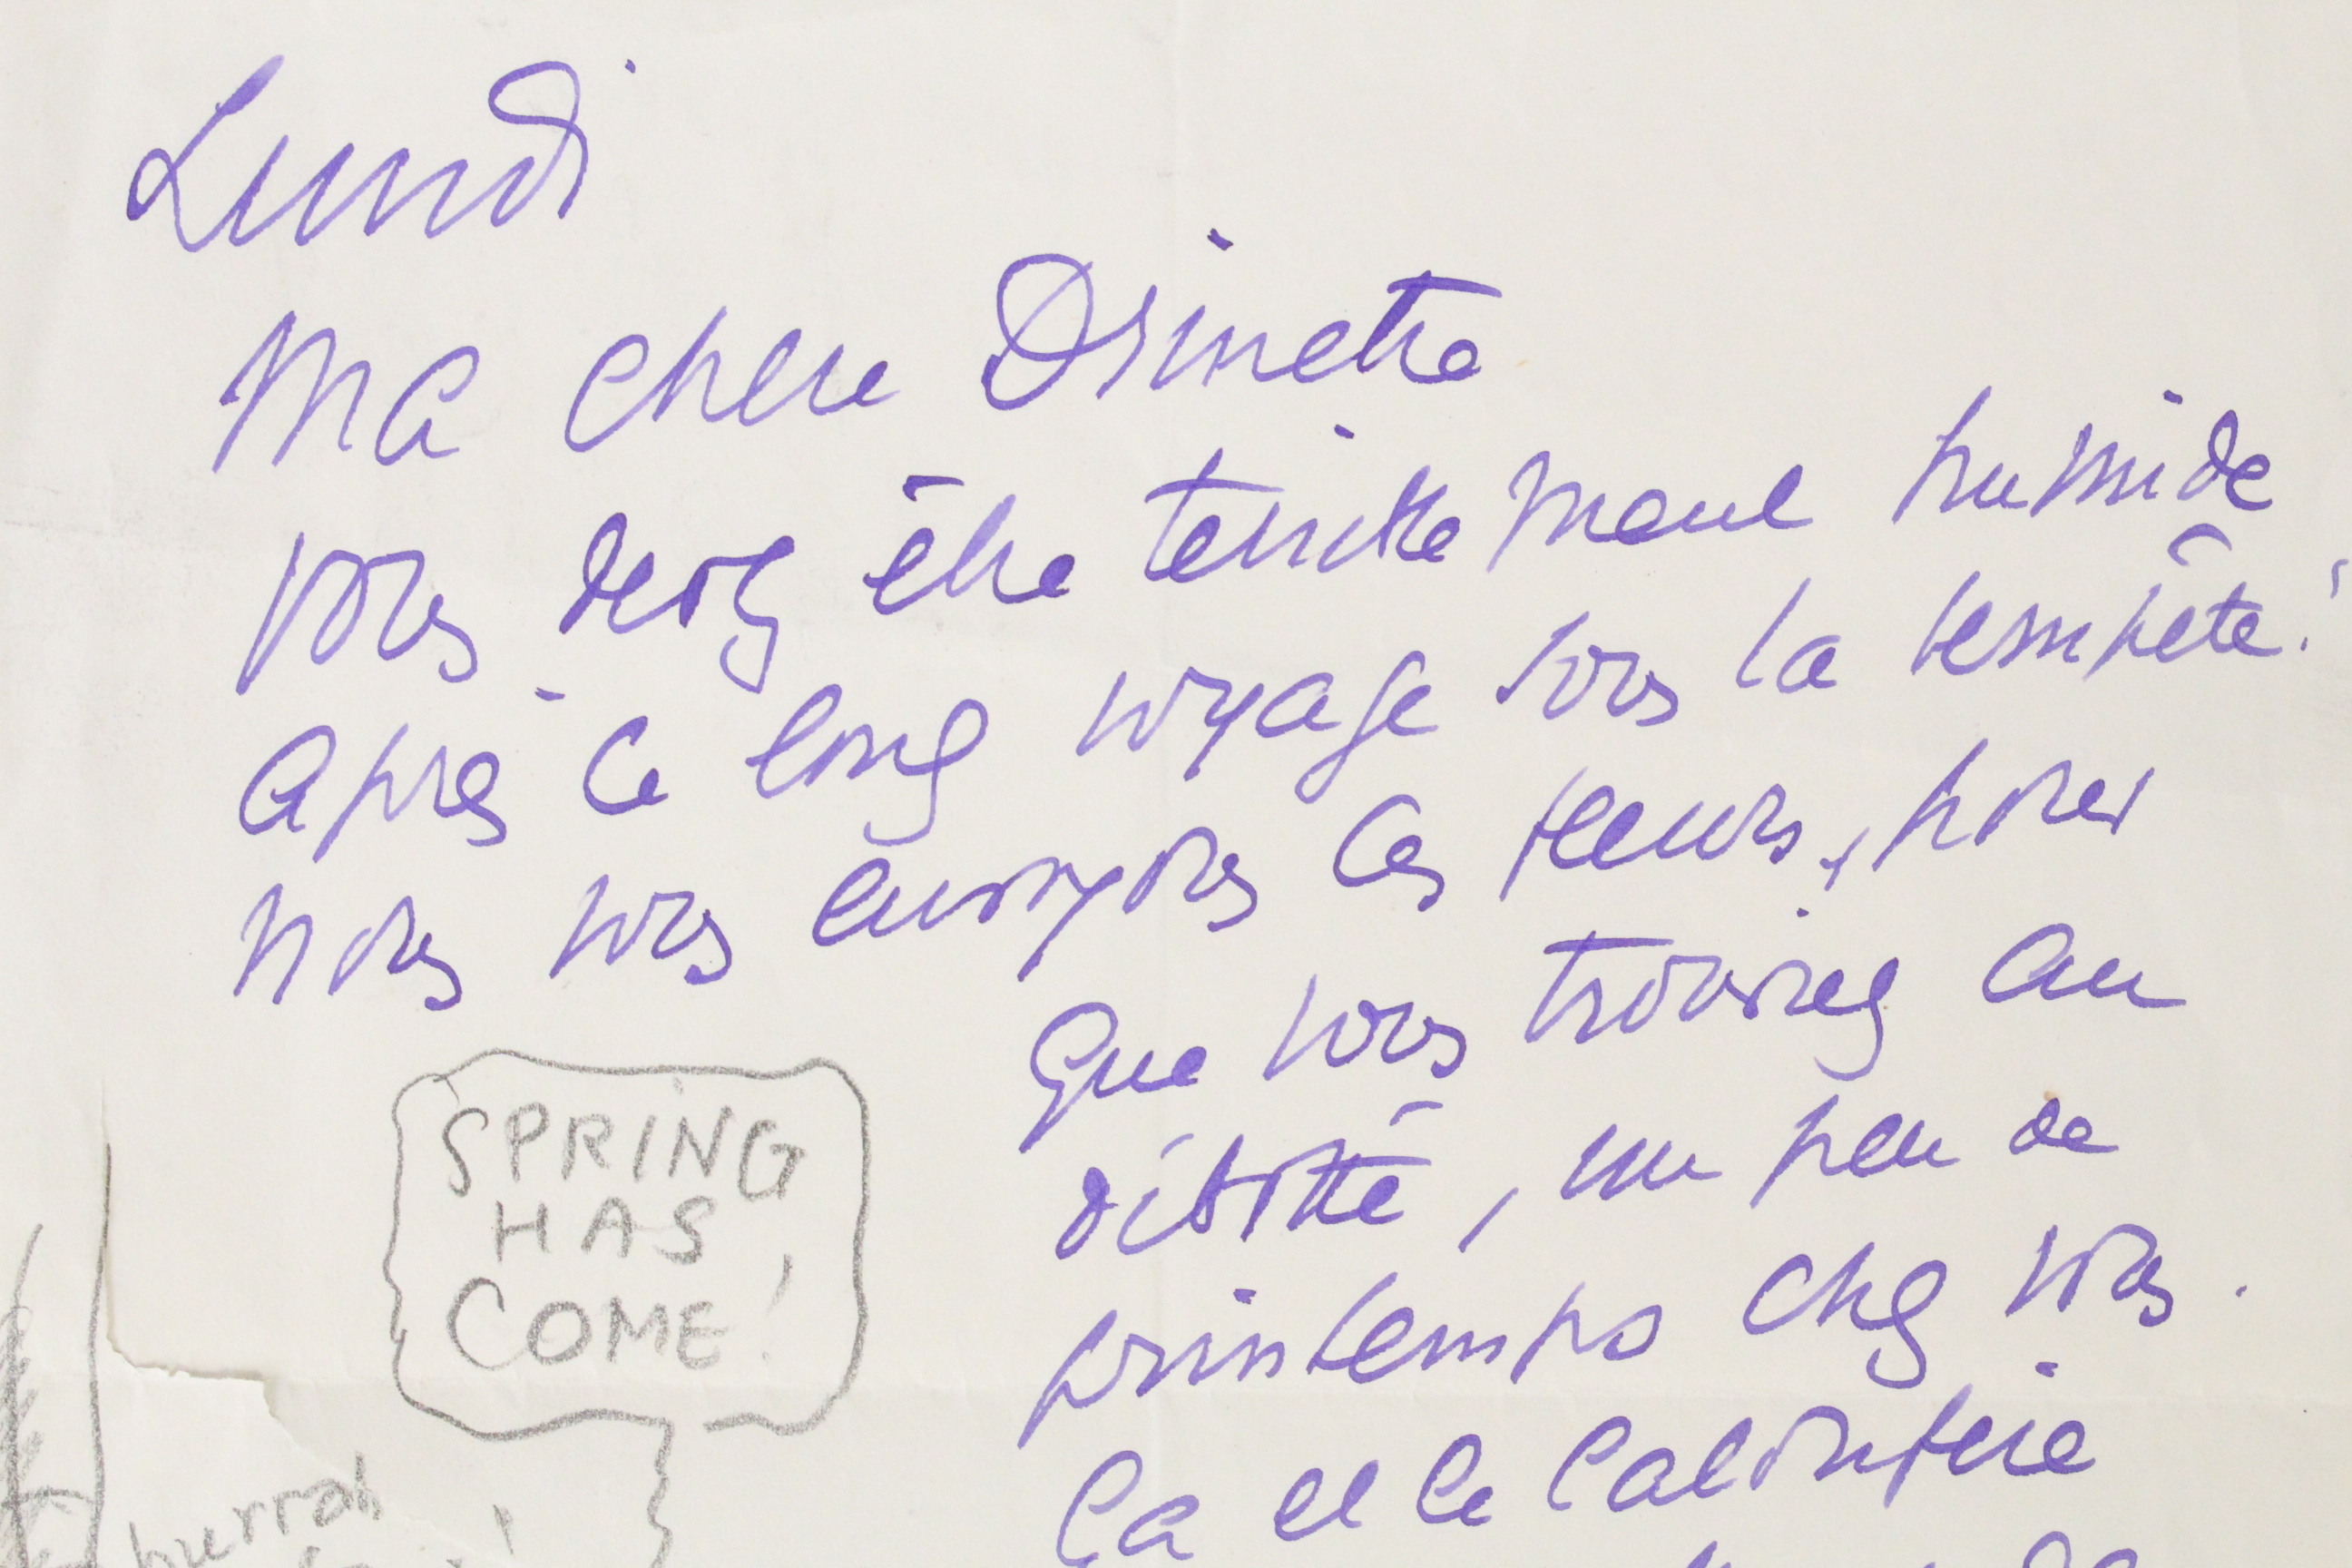 Lundi
Ma chere Disinette
vous devez être terriblement humide
après ce long voyage sous la tempête!
nous vous envoyons ces fleurs, pour
que vous trouviez au
débotté, un peu de
printemps chez vous.
Ça et le calorifère
SPRING
HAS
COME!
hurrah